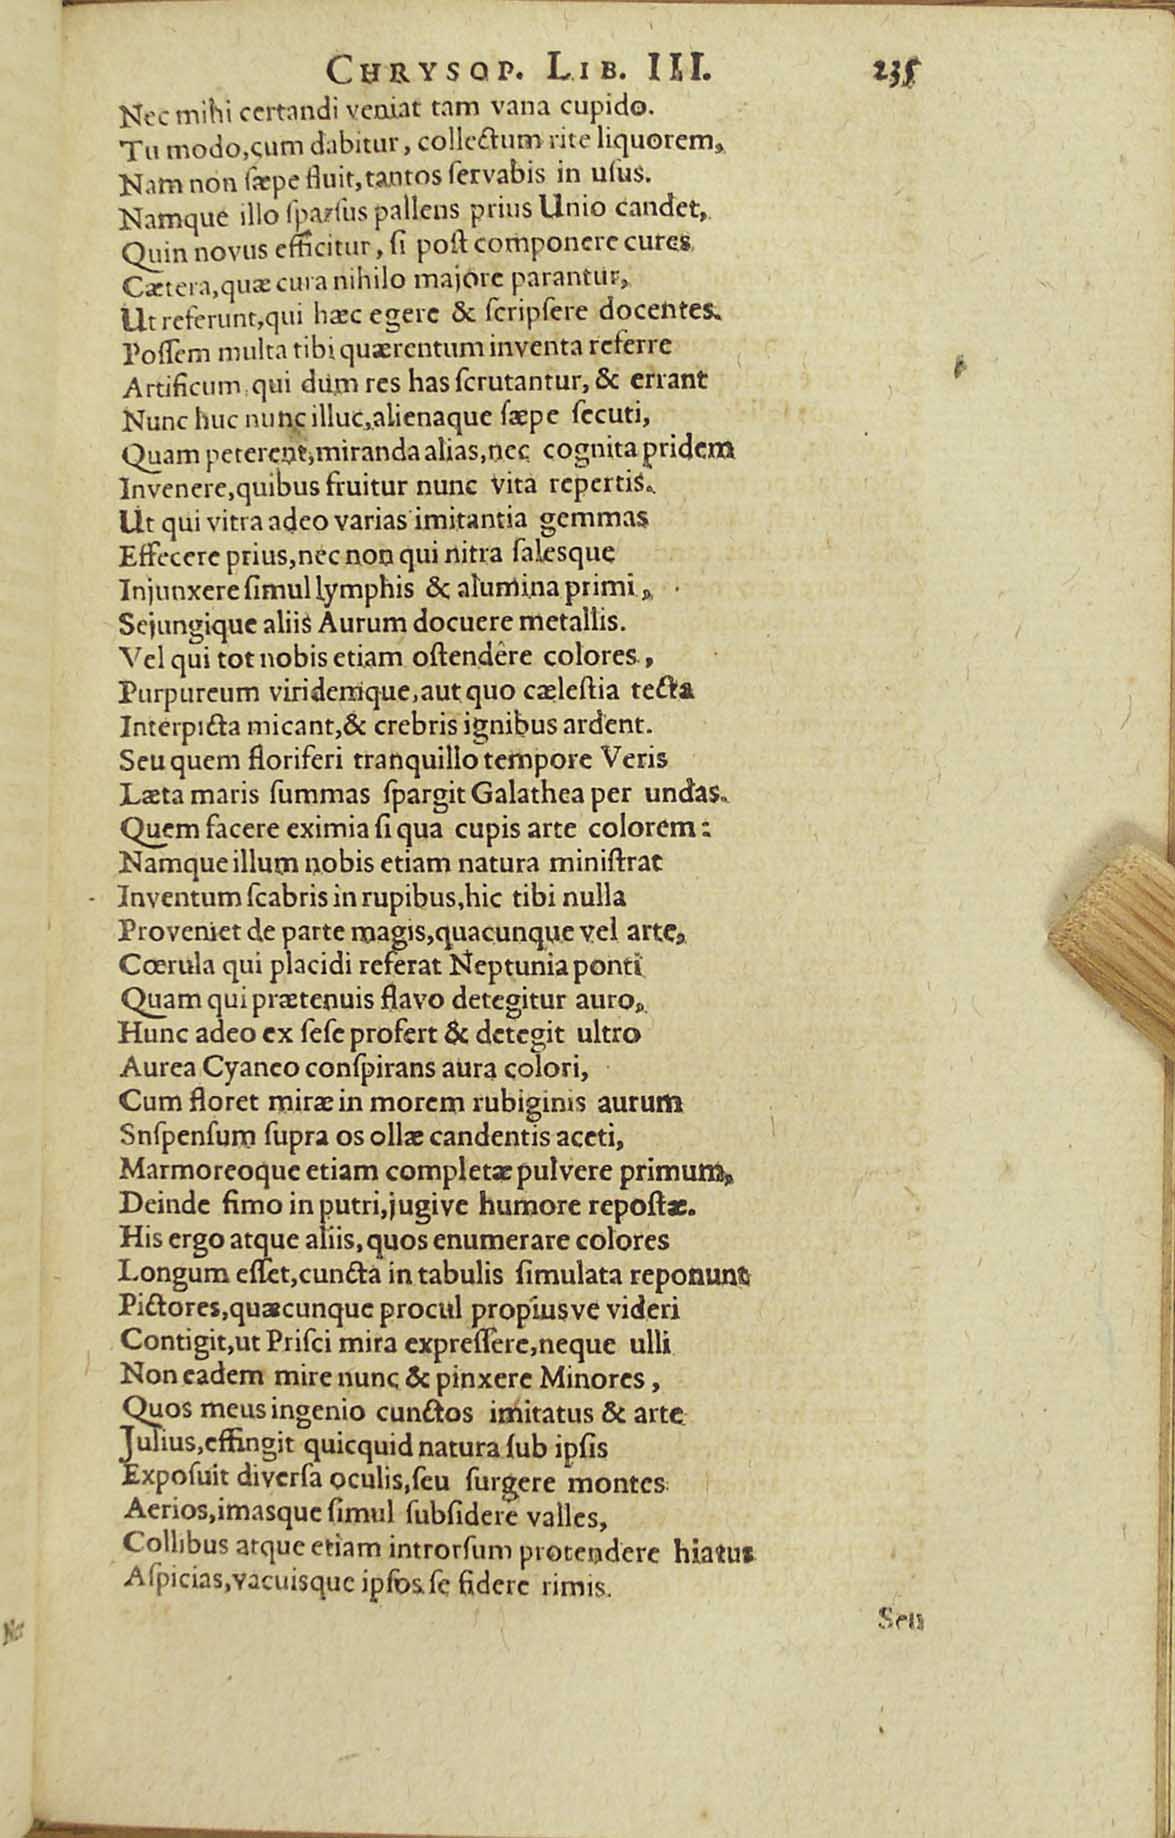 CHRYSOP. LIB. III. 235
Nec mihi certandi veniat tam vana cupido.
Tu modo, cum dabitur, collectum rite liquorem,
Nam non sæpe fluit, tantos ſervabis in uſus.
Namque illo ſparſus pallens prius Unio candet,
Quin novus efficitur, ſi poſt componere cures
Cætera, quæ cura nihilo majore parantur,
Ut referunt, qui hæc egere & ſcripſere docentes.
Poſſem multa tibi quærentum inventa referre
Artificum, qui dum res has ſcrutantur, & errant
Nunc huc nunc illuc, alienaque ſæpe ſecuti,
Quam peterent, miranda alias, nec cognita pridem
Invenere, quibus fruitur nunc vita repertis.
Ut qui vitra adeo varias imitantia gemmas
Effecere prius, nec non qui nitra ſalesque
Injunxere ſimul lymphis & alumina primi,
Sejungique aliis Aurum docuere metallis.
Vel qui tot nobis etiam oſtendêre colores,
Purpureum viridemque, aut quo cæleſtia tecta
Interpicta micant, & crebris ignibus ardent.
Seu quem floriferi tranquillo tempore Veris
Læta maris ſummas ſpargit Galathea per undas.
Quem facere eximia ſi qua cupis arte colorem:
Namque illum nobis etiam natura miniſtrat
Inventum ſcabris in rupibus, hic tibi nulla
Proveniet de parte magis, quacunque vel arte,
Cœrula qui placidi referat Neptunia ponti
Quam qui prætenuis flavo detegitur auro,
Hunc adeo ex ſeſe profert & detegit ultro
Aurea Cyaneo conſpirans aura colori,
Cum floret miræ in morem rubiginis aurum
Snſpenſum ſupra os ollæ candentis aceti,
Marmoreoque etiam completæ pulvere primum,
Deinde fimo in putri, jugive humore repoſtæ.
His ergo atque aliis, quos enumerare colores
Longum eſſet, cuncta in tabulis ſimulata reponunt
Pictores, quæcunque procul propiusve videri
Contigit, ut Priſci mira expreſſere, neque ulli
Non eadem mire nunc & pinxere Minores,
Quos meus ingenio cunctos imitatus & arte
Julius, effingit quicquid natura ſub ipſis
Expoſuit diverſa oculis, ſeu ſurgere montes
Aerios, imasque ſimul ſubſidere valles,
Collibus atque etiam introrſum protendere hiatus
Aſpicias, vacuisque ipſos ſe fidere rimis.
Seu